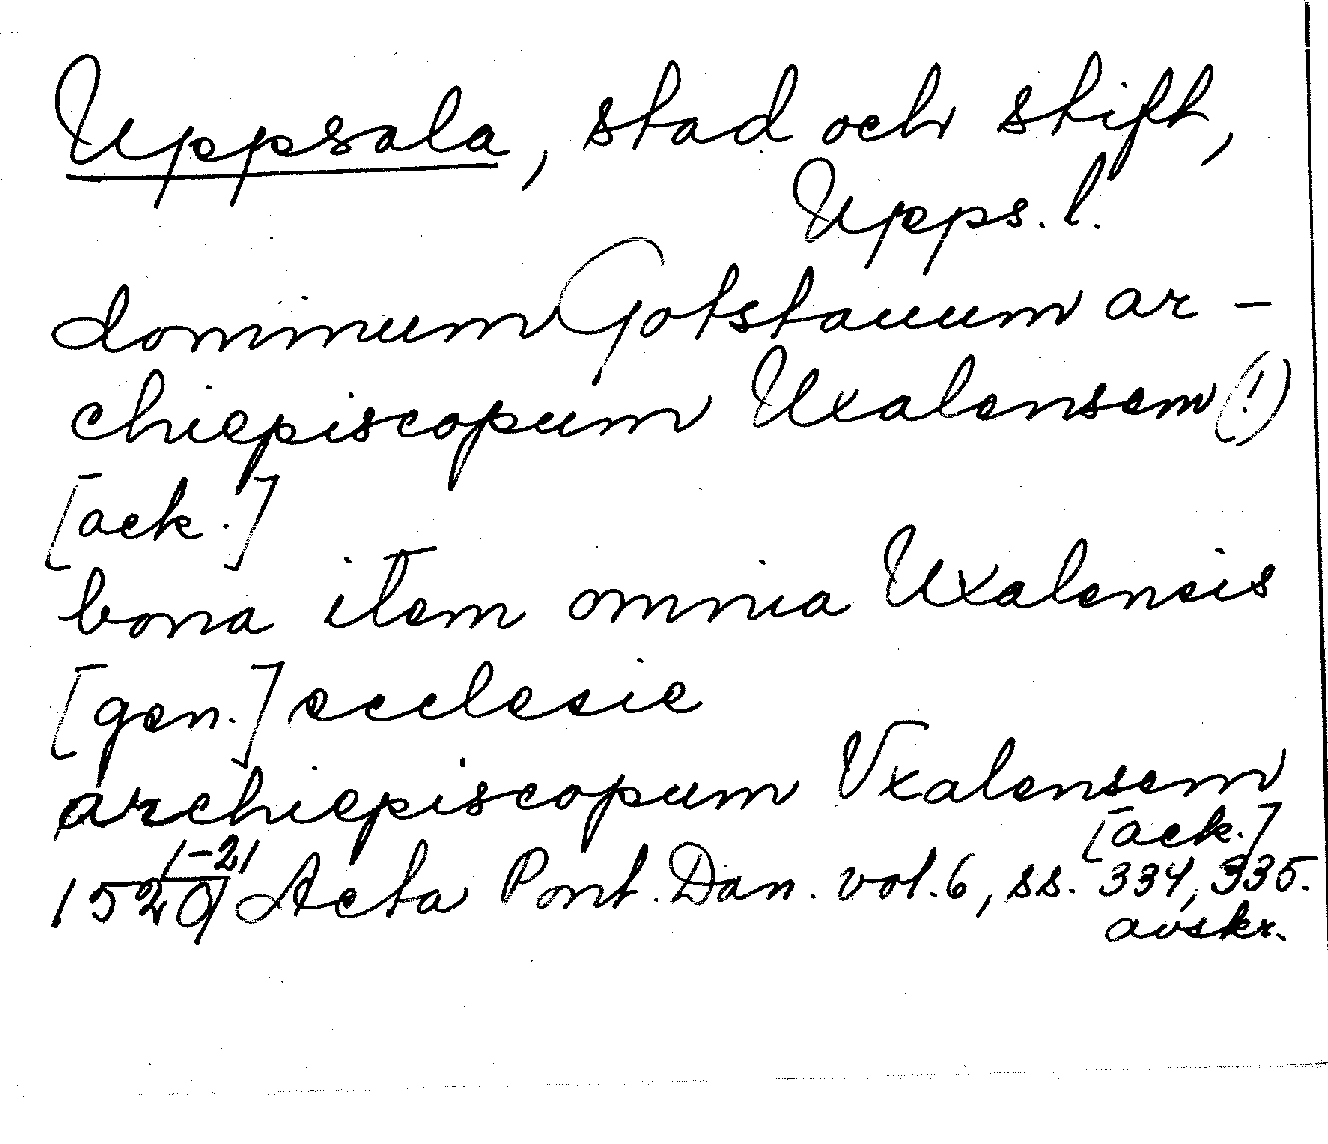 Uppsala, stad och stift,
Upps. l.
dominum Gotstauum ar-
chiepiscopum Uxalensem (!)
[ack.]
bona item omnia Uxalensis
[gen.] ecclesie
archiepiscopum Vxalensem
[ack.]
1520 /-21/ Acta Pont. Dan. vol. 6, ss. 334, 335.
avskr.